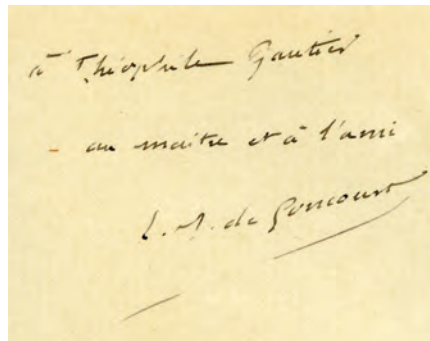 à Théophile Gautier
au maitre et à l'ami
E. J. de Goncourt